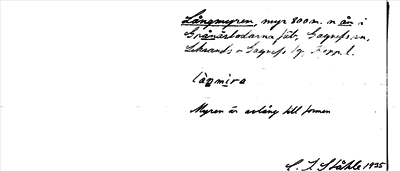 Långmyren, myr 800 m. n ån i
Grånäsbodarna fäb, Gagnefs sn,
Leksands o Gagnefs tg. Kopp. l.
làŋmira
Myren är avlång till formen
C. I. Ståhle 1935